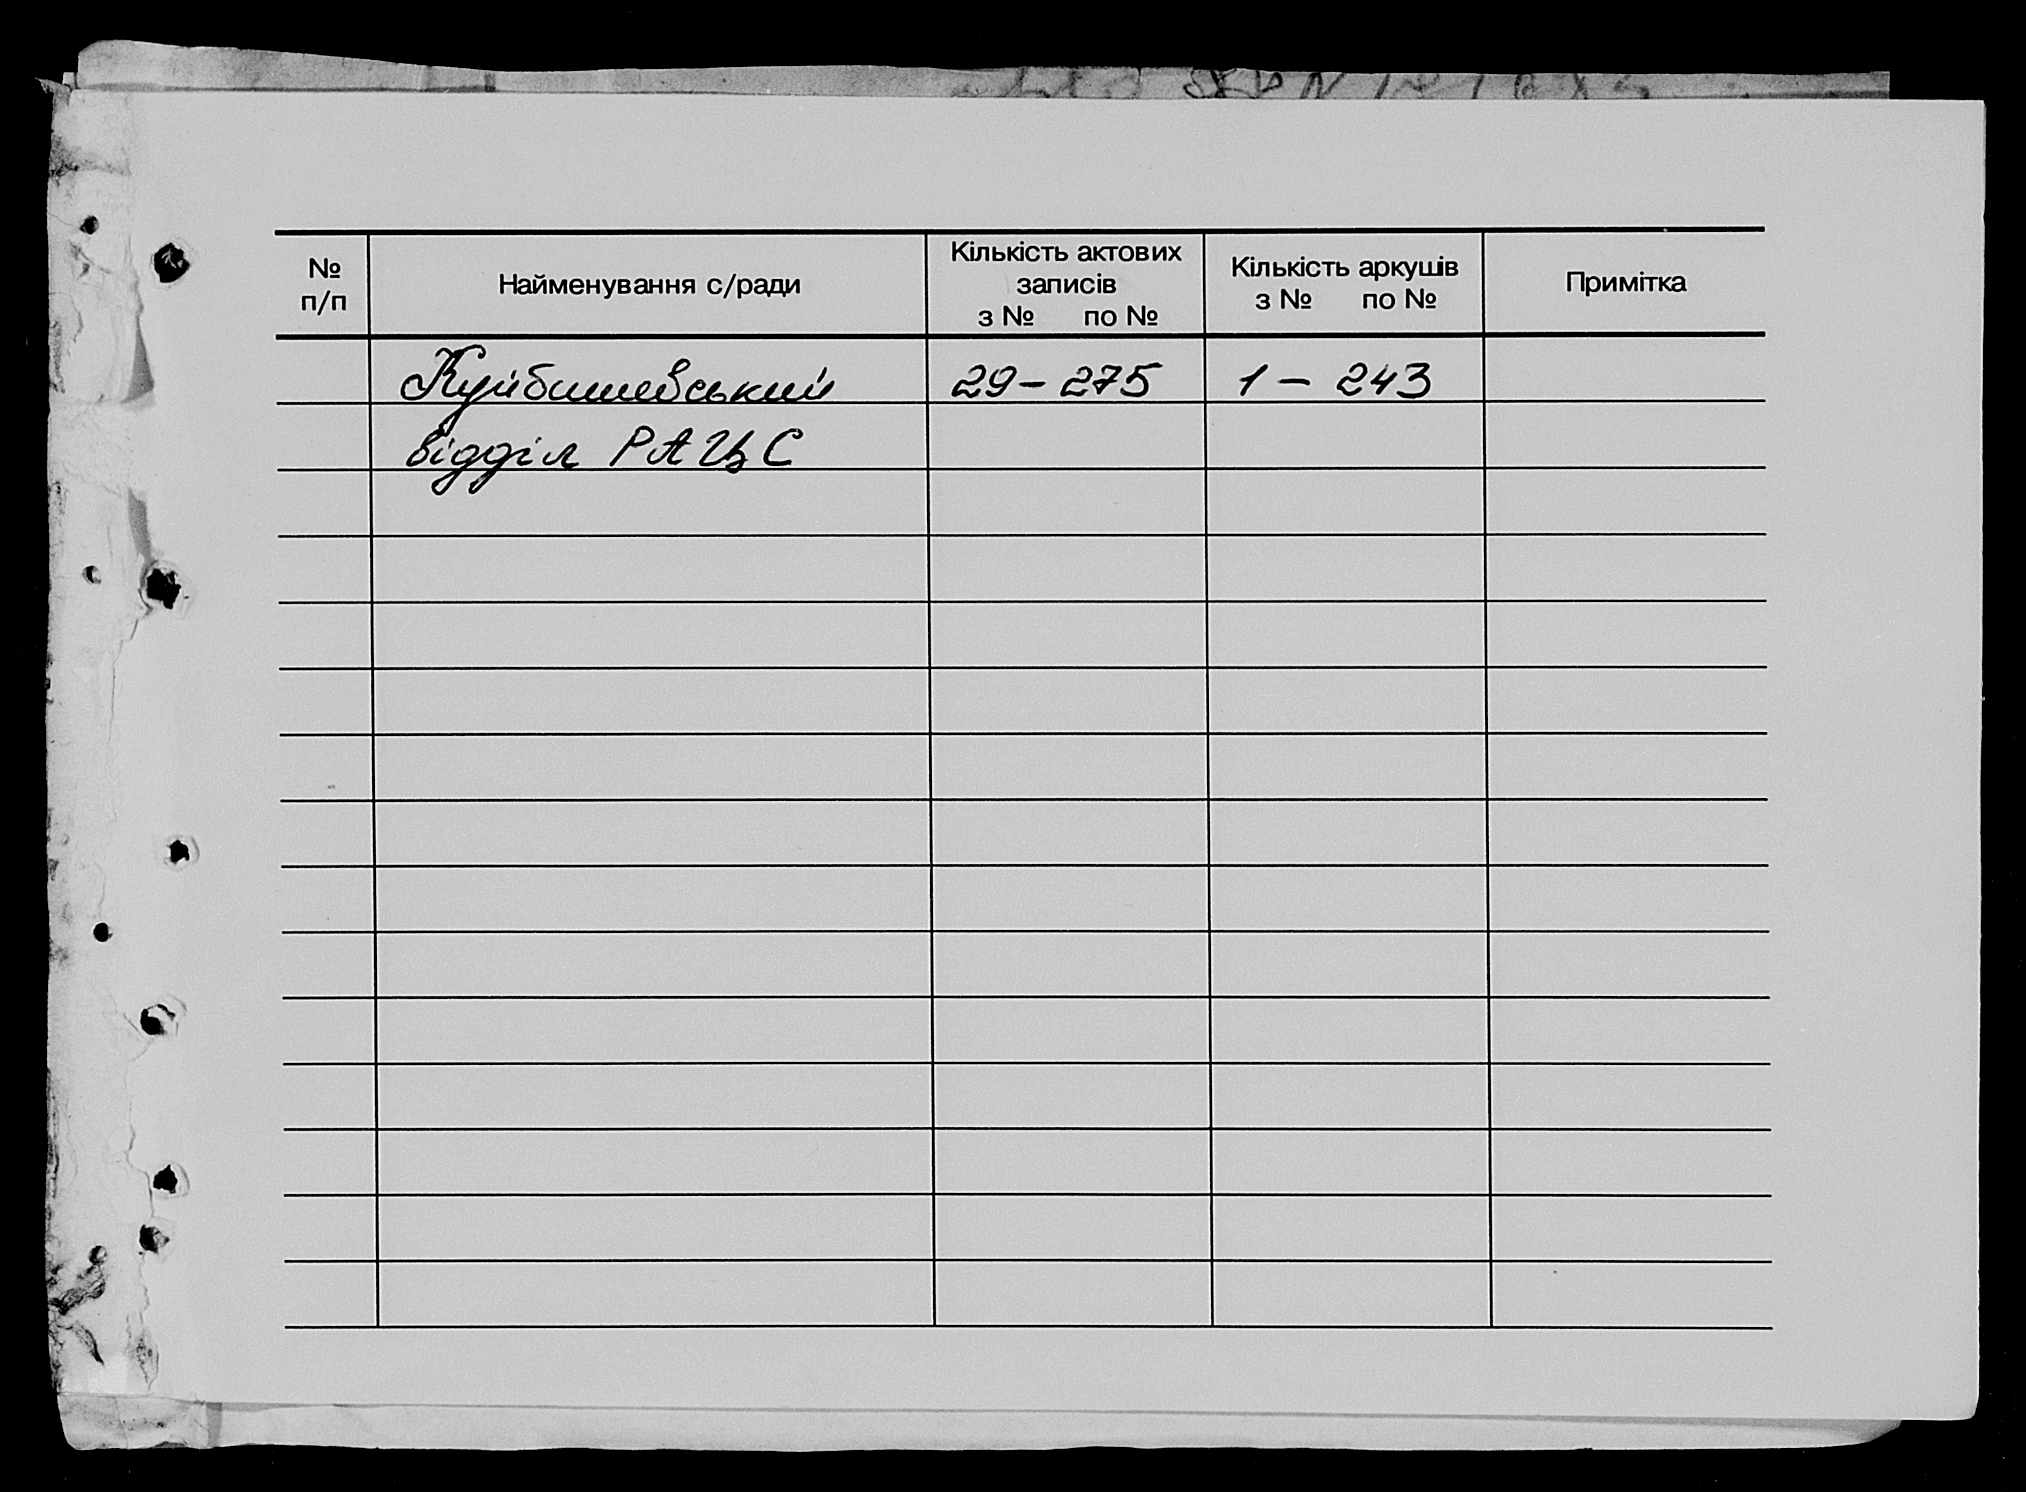 № п/п
Найменування с/ради
Кількість актових
записів
з № по №
Кількість аркушів
з № по №
Примітка
Куйбишевський 29 - 275 1 - 243
відділ РАЦС